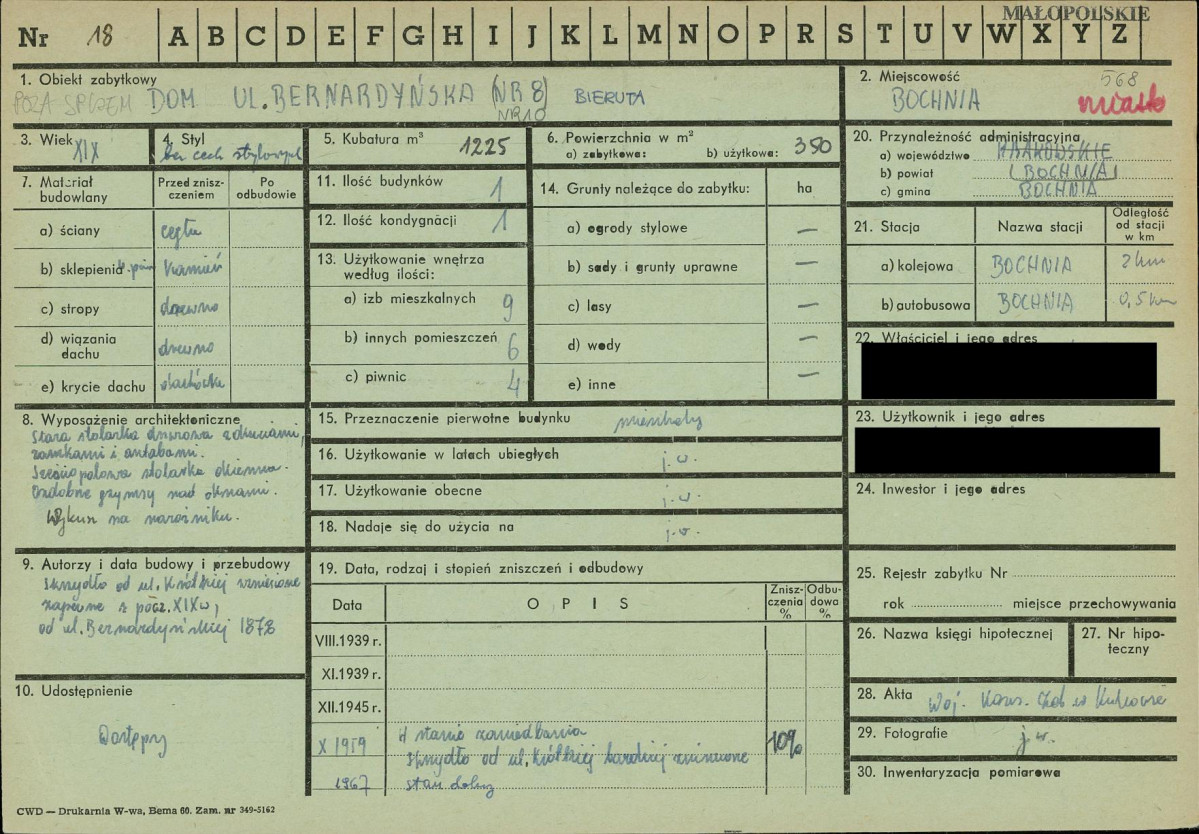 MAŁOPOLSKIE
Nr 18 A B C D E F G H I J K L M N O P R S T U V W X Y Z
1. Obiekt zabytkowy
POZA SPISEM DOM UL. BERNARDYŃSKA (NR 8) BIERUTA
NR 10
2. Miejscowość 568
BOCHNIA miasto
3. Wiek XIX
4. Styl
bez cech stylowych
5. Kubatura m³ 1225
6. Powierzchnia w m²
a) zabytkowa: b) użytkowa: 350
20. Przynależność administracyjna
a) województwo KRAKOWSKIE
b) powiat (BOCHNIA)
c) gmina BOCHNIA
7. Materiał budowlany
Przed zniszczeniem
Po odbudowie
a) ściany cegła
b) sklepienia kamień
c) stropy drewno
d) wiązania dachu drewno
e) krycie dachu dachówka
11. Ilość budynków 1
12. Ilość kondygnacji 1
13. Użytkowanie wnętrza
według ilości:
a) izb mieszkalnych 9
b) innych pomieszczeń 6
c) piwnic 4
14. Grunty należące do zabytku: ha
a) ogrody stylowe —
b) sady i grunty uprawne —
c) lasy —
d) wody —
e) inne —
21. Stacja Nazwa stacji Odległość od stacji w km
a) kolejowa BOCHNIA 2 km
b) autobusowa BOCHNIA 0,5 km
22. Właściciel i jego adres
23. Użytkownik i jego adres
24. Inwestor i jego adres
8. Wyposażenie architektoniczne
Stara stolarka drzwiowa z okuciami,
zamkami i antabami.
Sześciopolowa stolarka okienna.
Ozdobne gzymsy nad oknami.
Wykusz na narożniku.
15. Przeznaczenie pierwotne budynku mieszkalny
16. Użytkowanie w latach ubiegłych j.w.
17. Użytkowanie obecne j.w.
18. Nadaje się do użycia na j.w.
9. Autorzy i data budowy i przebudowy
Skrzydło od ul. Krótkiej wzniesione
zapewne z pocz. XIXw,
od ul. Bernardyńskiej 1878
10. Udostępnienie
Dostępny
19. Data, rodzaj i stopień zniszczeń i odbudowy
Data OPIS Zniszczenia % Odbudowa %
VIII.1939 r.
XI.1939 r.
XII.1945 r.
X 1959 W stanie zaniedbania 10%
Skrzydło od ul. Krótkiej bardziej zniszczone
1967 stan dobry
25. Rejestr zabytku Nr
rok miejsce przechowywania
26. Nazwa księgi hipotecznej
27. Nr hipoteczny
28. Akta Woj. Kons. Zab. w Krakowie
29. Fotografie j.w.
30. Inwentaryzacja pomiarowa
CWD — Drukarnia W-wa, Bema 60. Zam. nr 349-5162